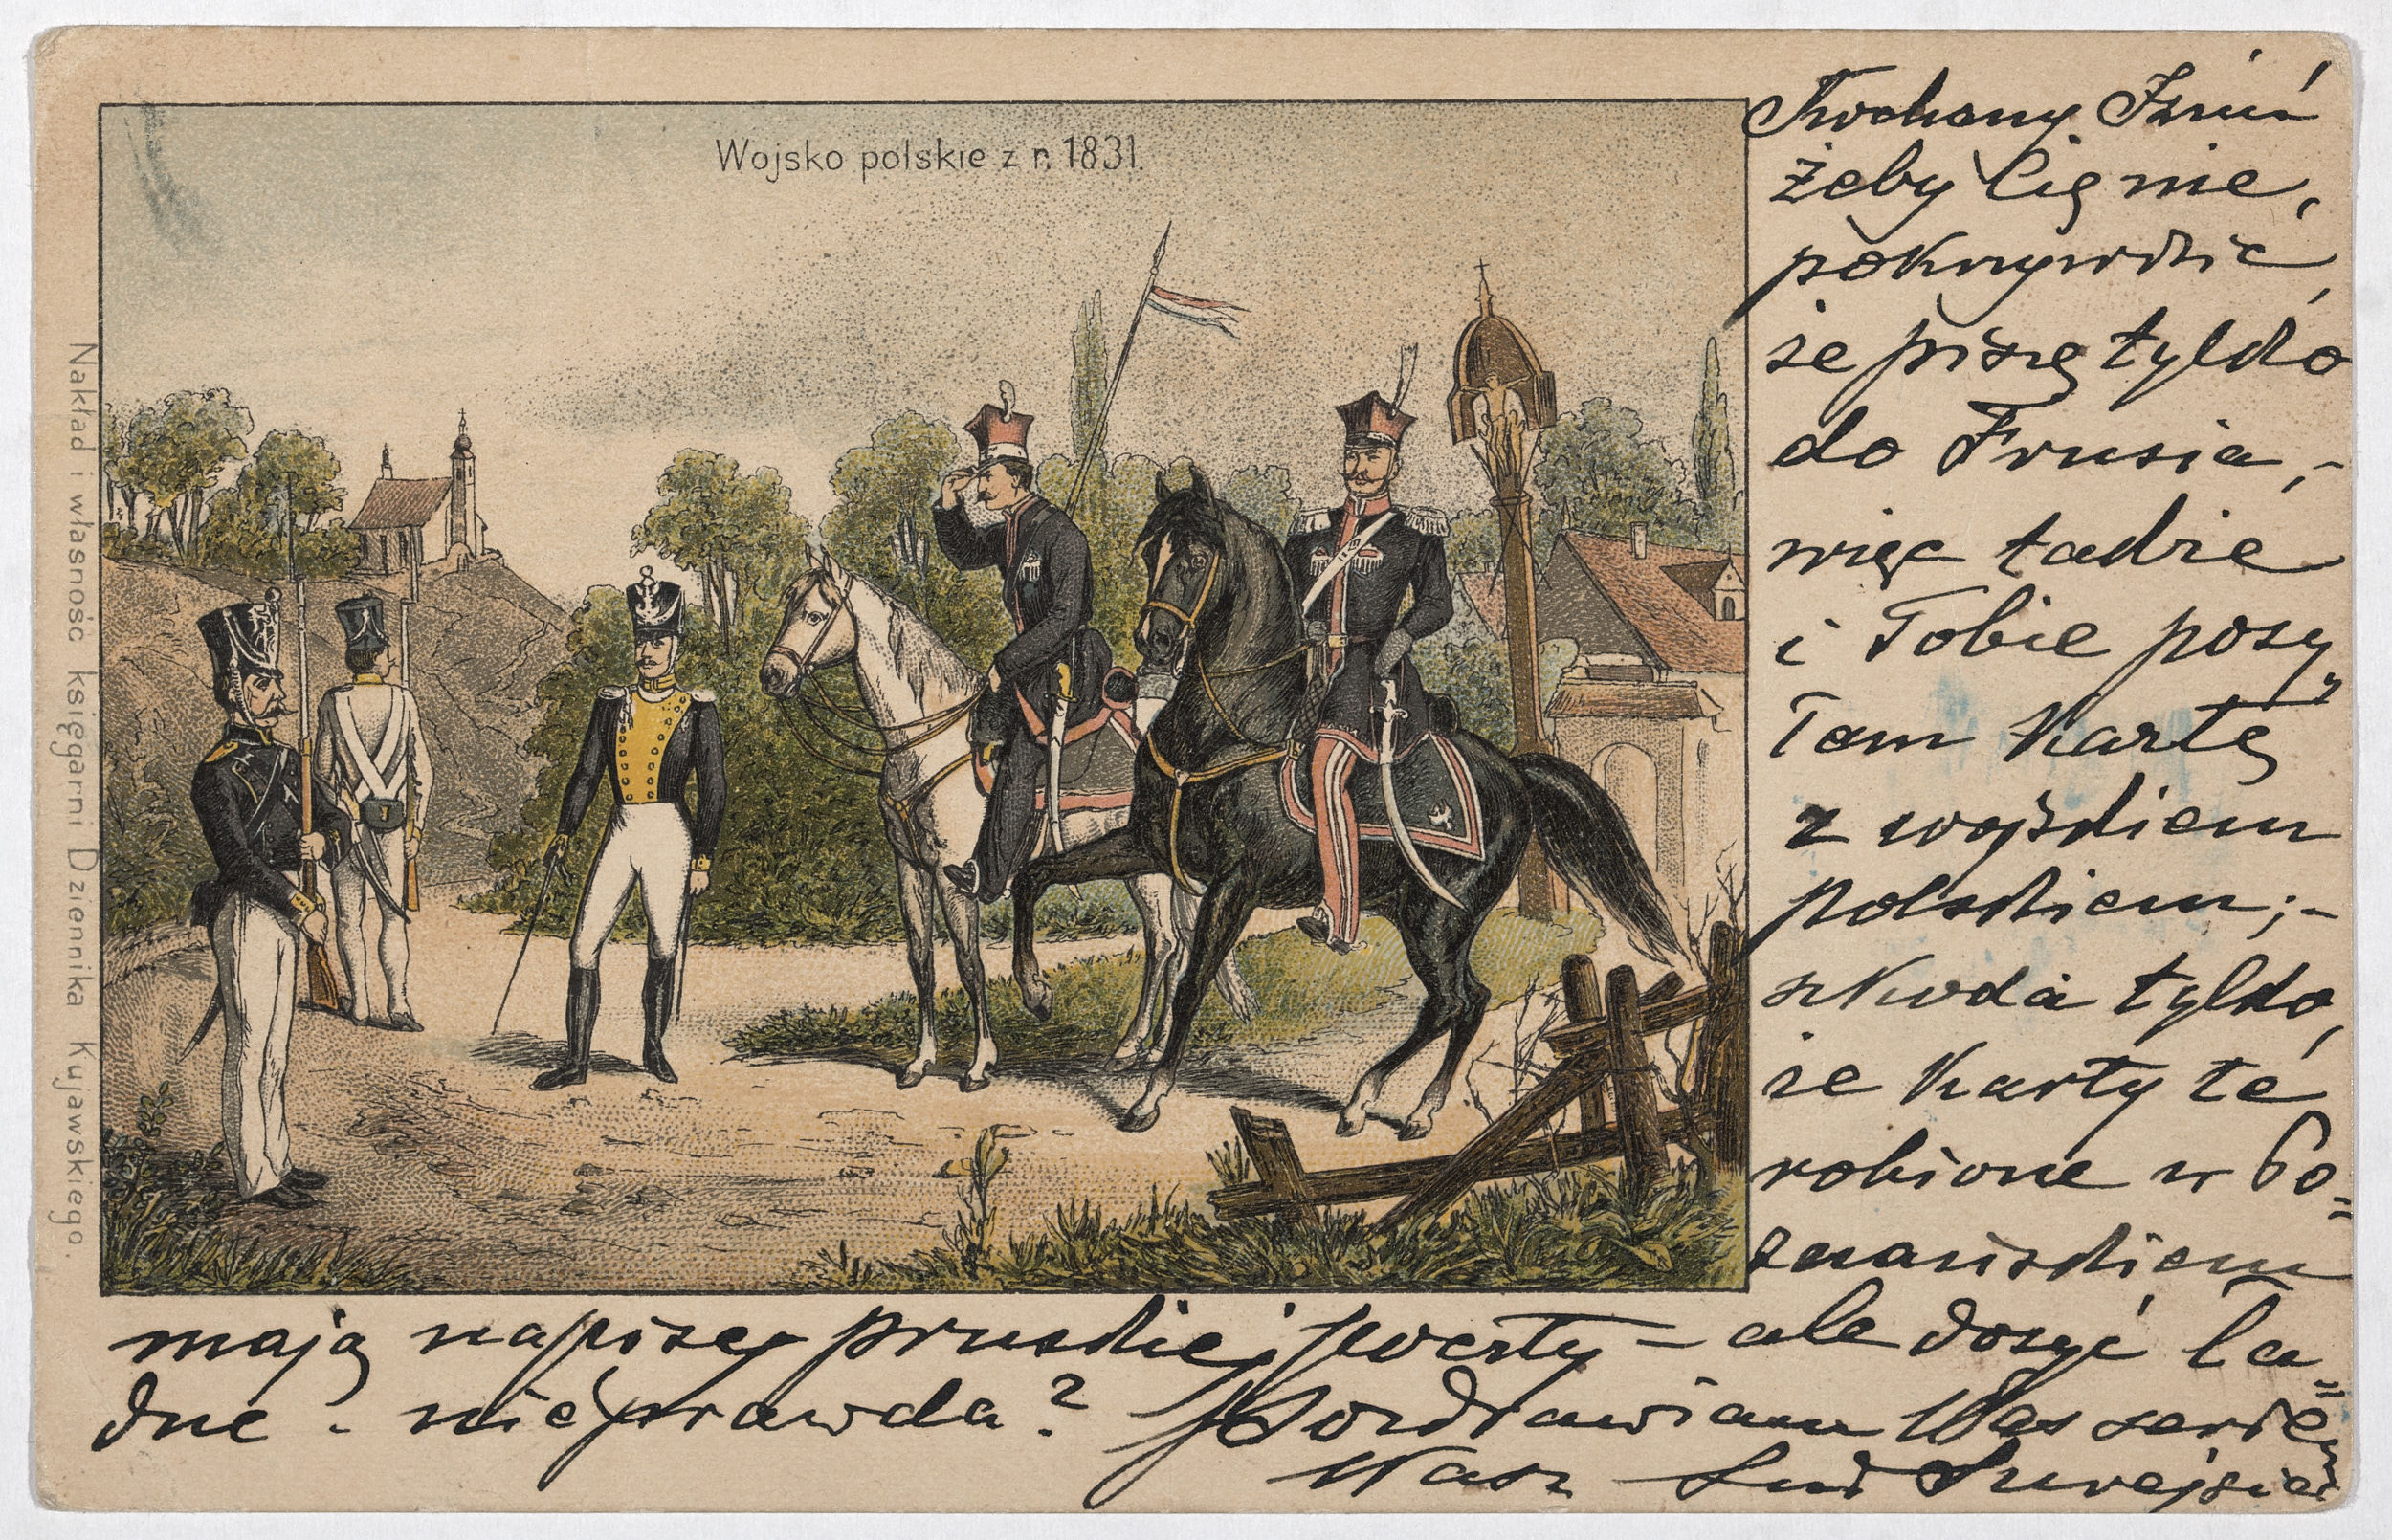 Wojsko polskie z r. 1831.
Nakład i własność księgarni Dziennika Kujawskiego.
Kochany
żeby Cię nie
pokrzywdzić,
że piszę tylko
do Frusia, -
więc także
i Tobie posy
łam kartę
z wojskiem
polskiem; -
szkoda tylko,
że karty te
robione w Po=
znańskiem
mają napisy pruskiej poczty - ale dosyć ła=
dne - nieprawda? Pozdrawiam Was
Wasz